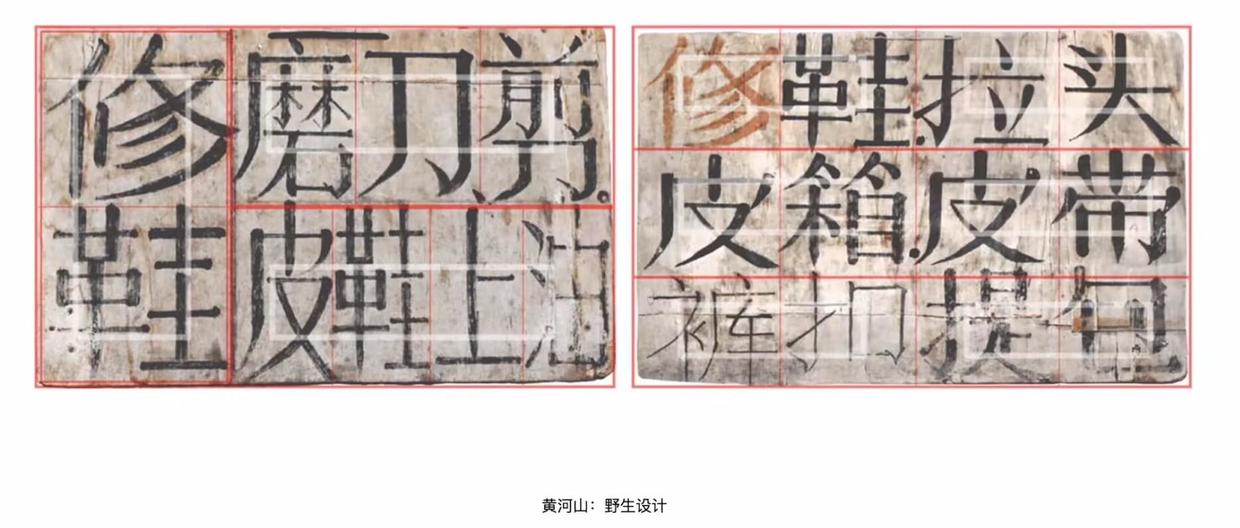 修鞋
磨刀剪
皮鞋上油
修鞋拉头
皮箱皮带
裤扣提包
黄河山：野生设计